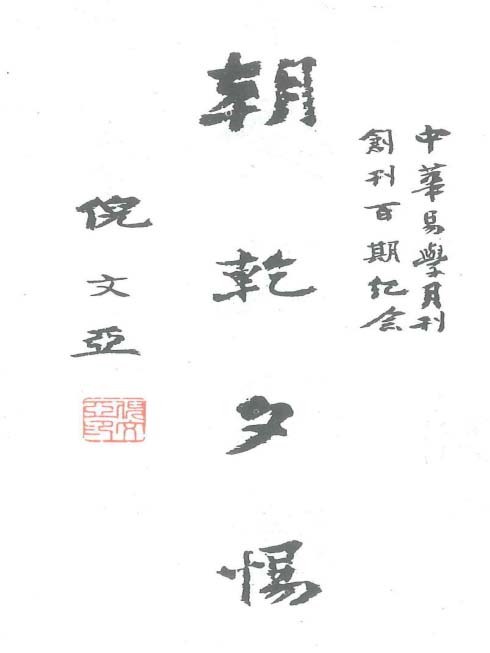 中華易學月刊
創刊百期紀念
朝乾夕惕
倪文亞